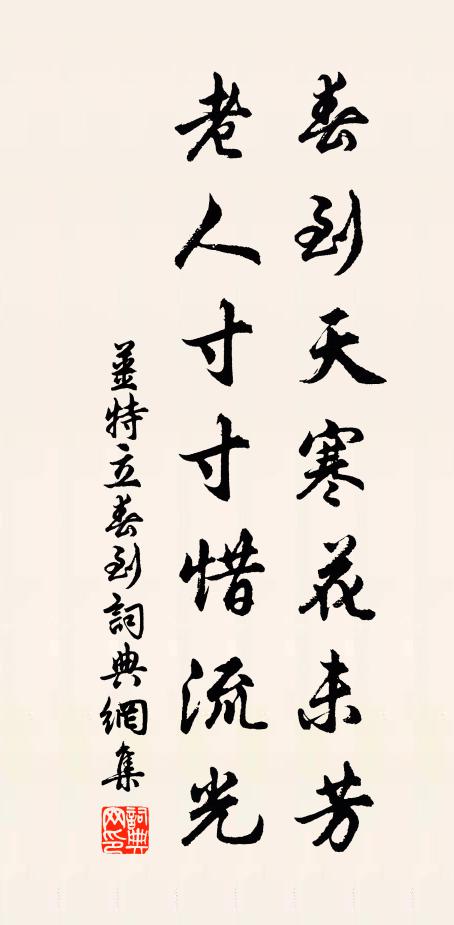 春到天寒花未芳
老人寸寸惜流光
姜特立春到詞典網集
詞典网印